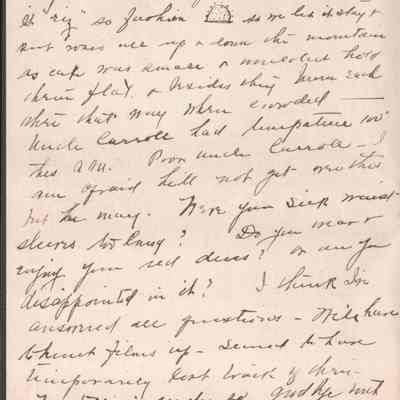 it "riz" so fashion so we let it stay &
put roses all up & down the mountain
as cup was small & wouldn't hold
their flat & besides they burn each
other that way when crowded —
Uncle Carroll had temperature 100°
this A.M. Poor Uncle Carroll — I
am afraid he'll not get over this
but he may. Were your silk waist
sleeves too long? Do you want
enjoy your red dress? or are you
disappointed in it? I think I've
answered all questions — Will have
to hunt films up — Seemed to have
temporarily lost track of them